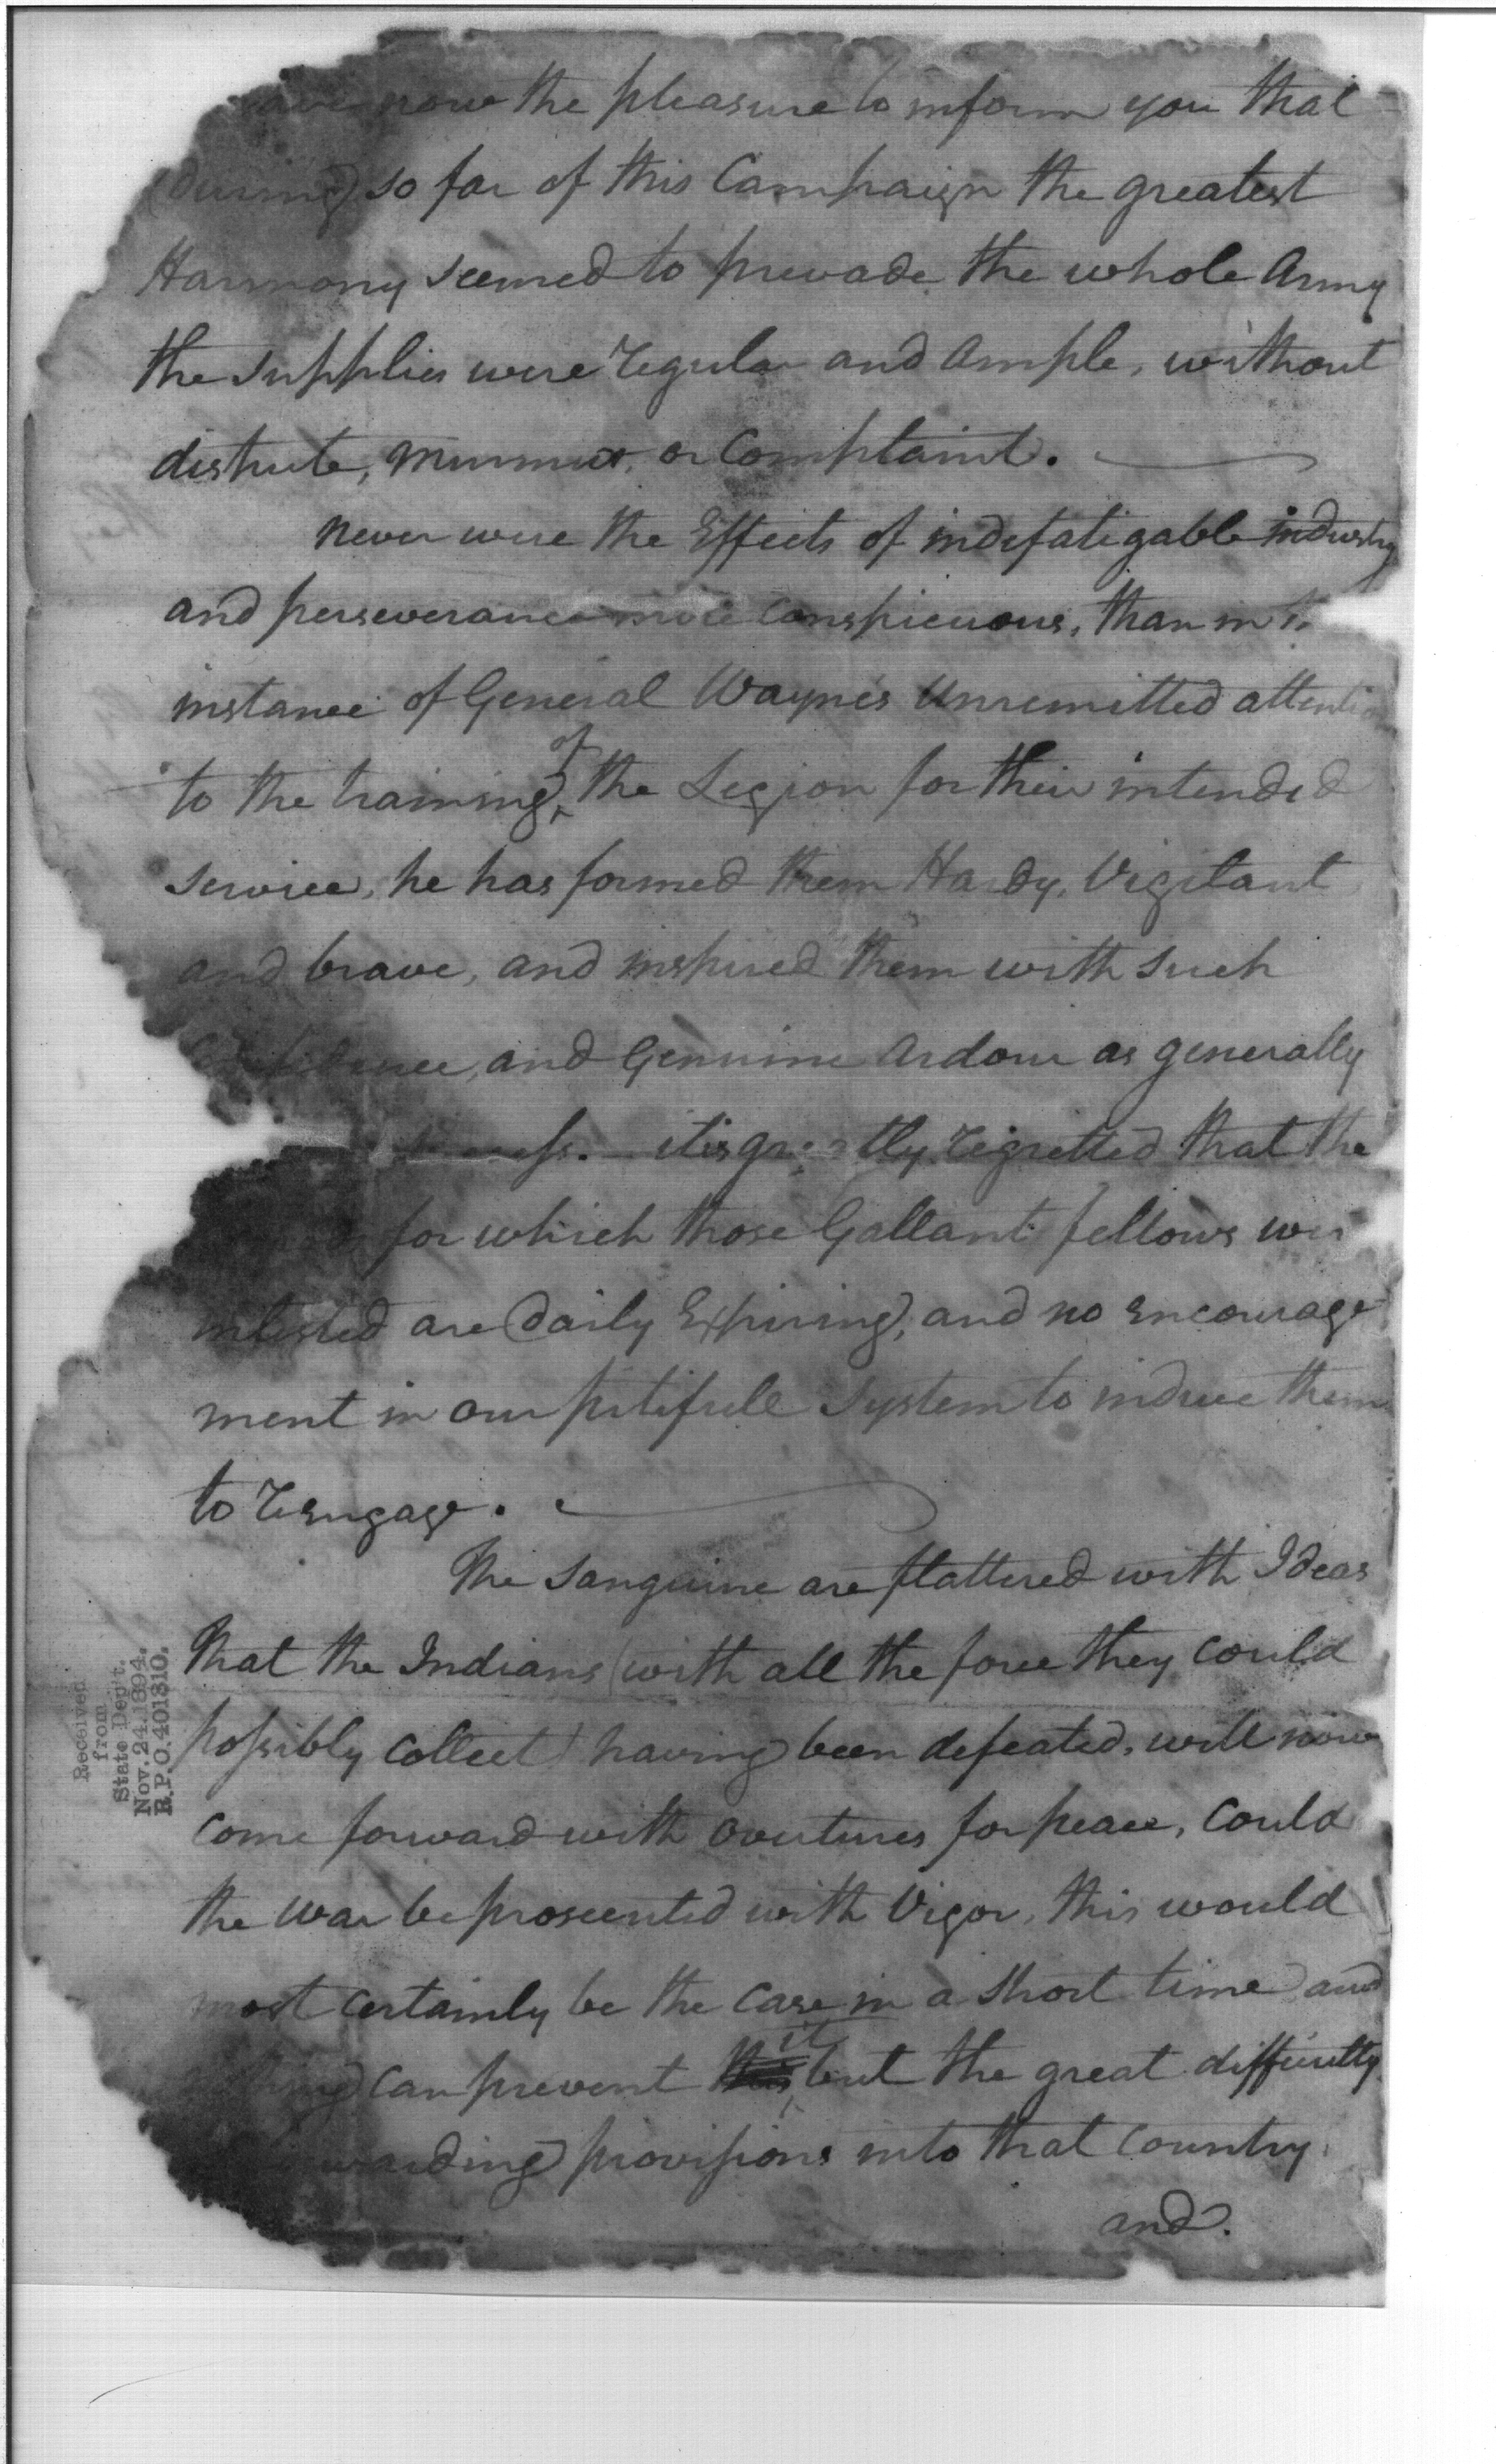 have now the pleasure to inform you that
(during) so far of this Campaign the greatest
Harmony seemed to prevade the whole Army
the supplies were regular and ample, without
distrute, murmur, or Complaint.
never were the Effects of indefatigable industry
and perseverance more conspicuous, than in
instance of General Wayne's Unremitted attention
to the training of the Legion for their intended
service, he has formed them Hardy, Vigilant
and brave, and inspired them with such
and Genuine Ardour as generally
it is greatly regretted that the
for which those Gallant fellows wer
inlisted are daily Expiring, and no Encourage
ment in our pitifull System to induce them
to reengage.
The Sanguine are flattered with Ideas
that the Indians (with all the force they could
possibly collect) having been defeated, will now
come forward with overtures for peace, Could
the war be prosecuted with Vigor, this would
most certainly be the case in a short time and
can prevent it but the great difficulty
warding provisions into that Country.
and.
Received
from
State Dept.
Nov. 24. 1894.
R.P.O. 401310.